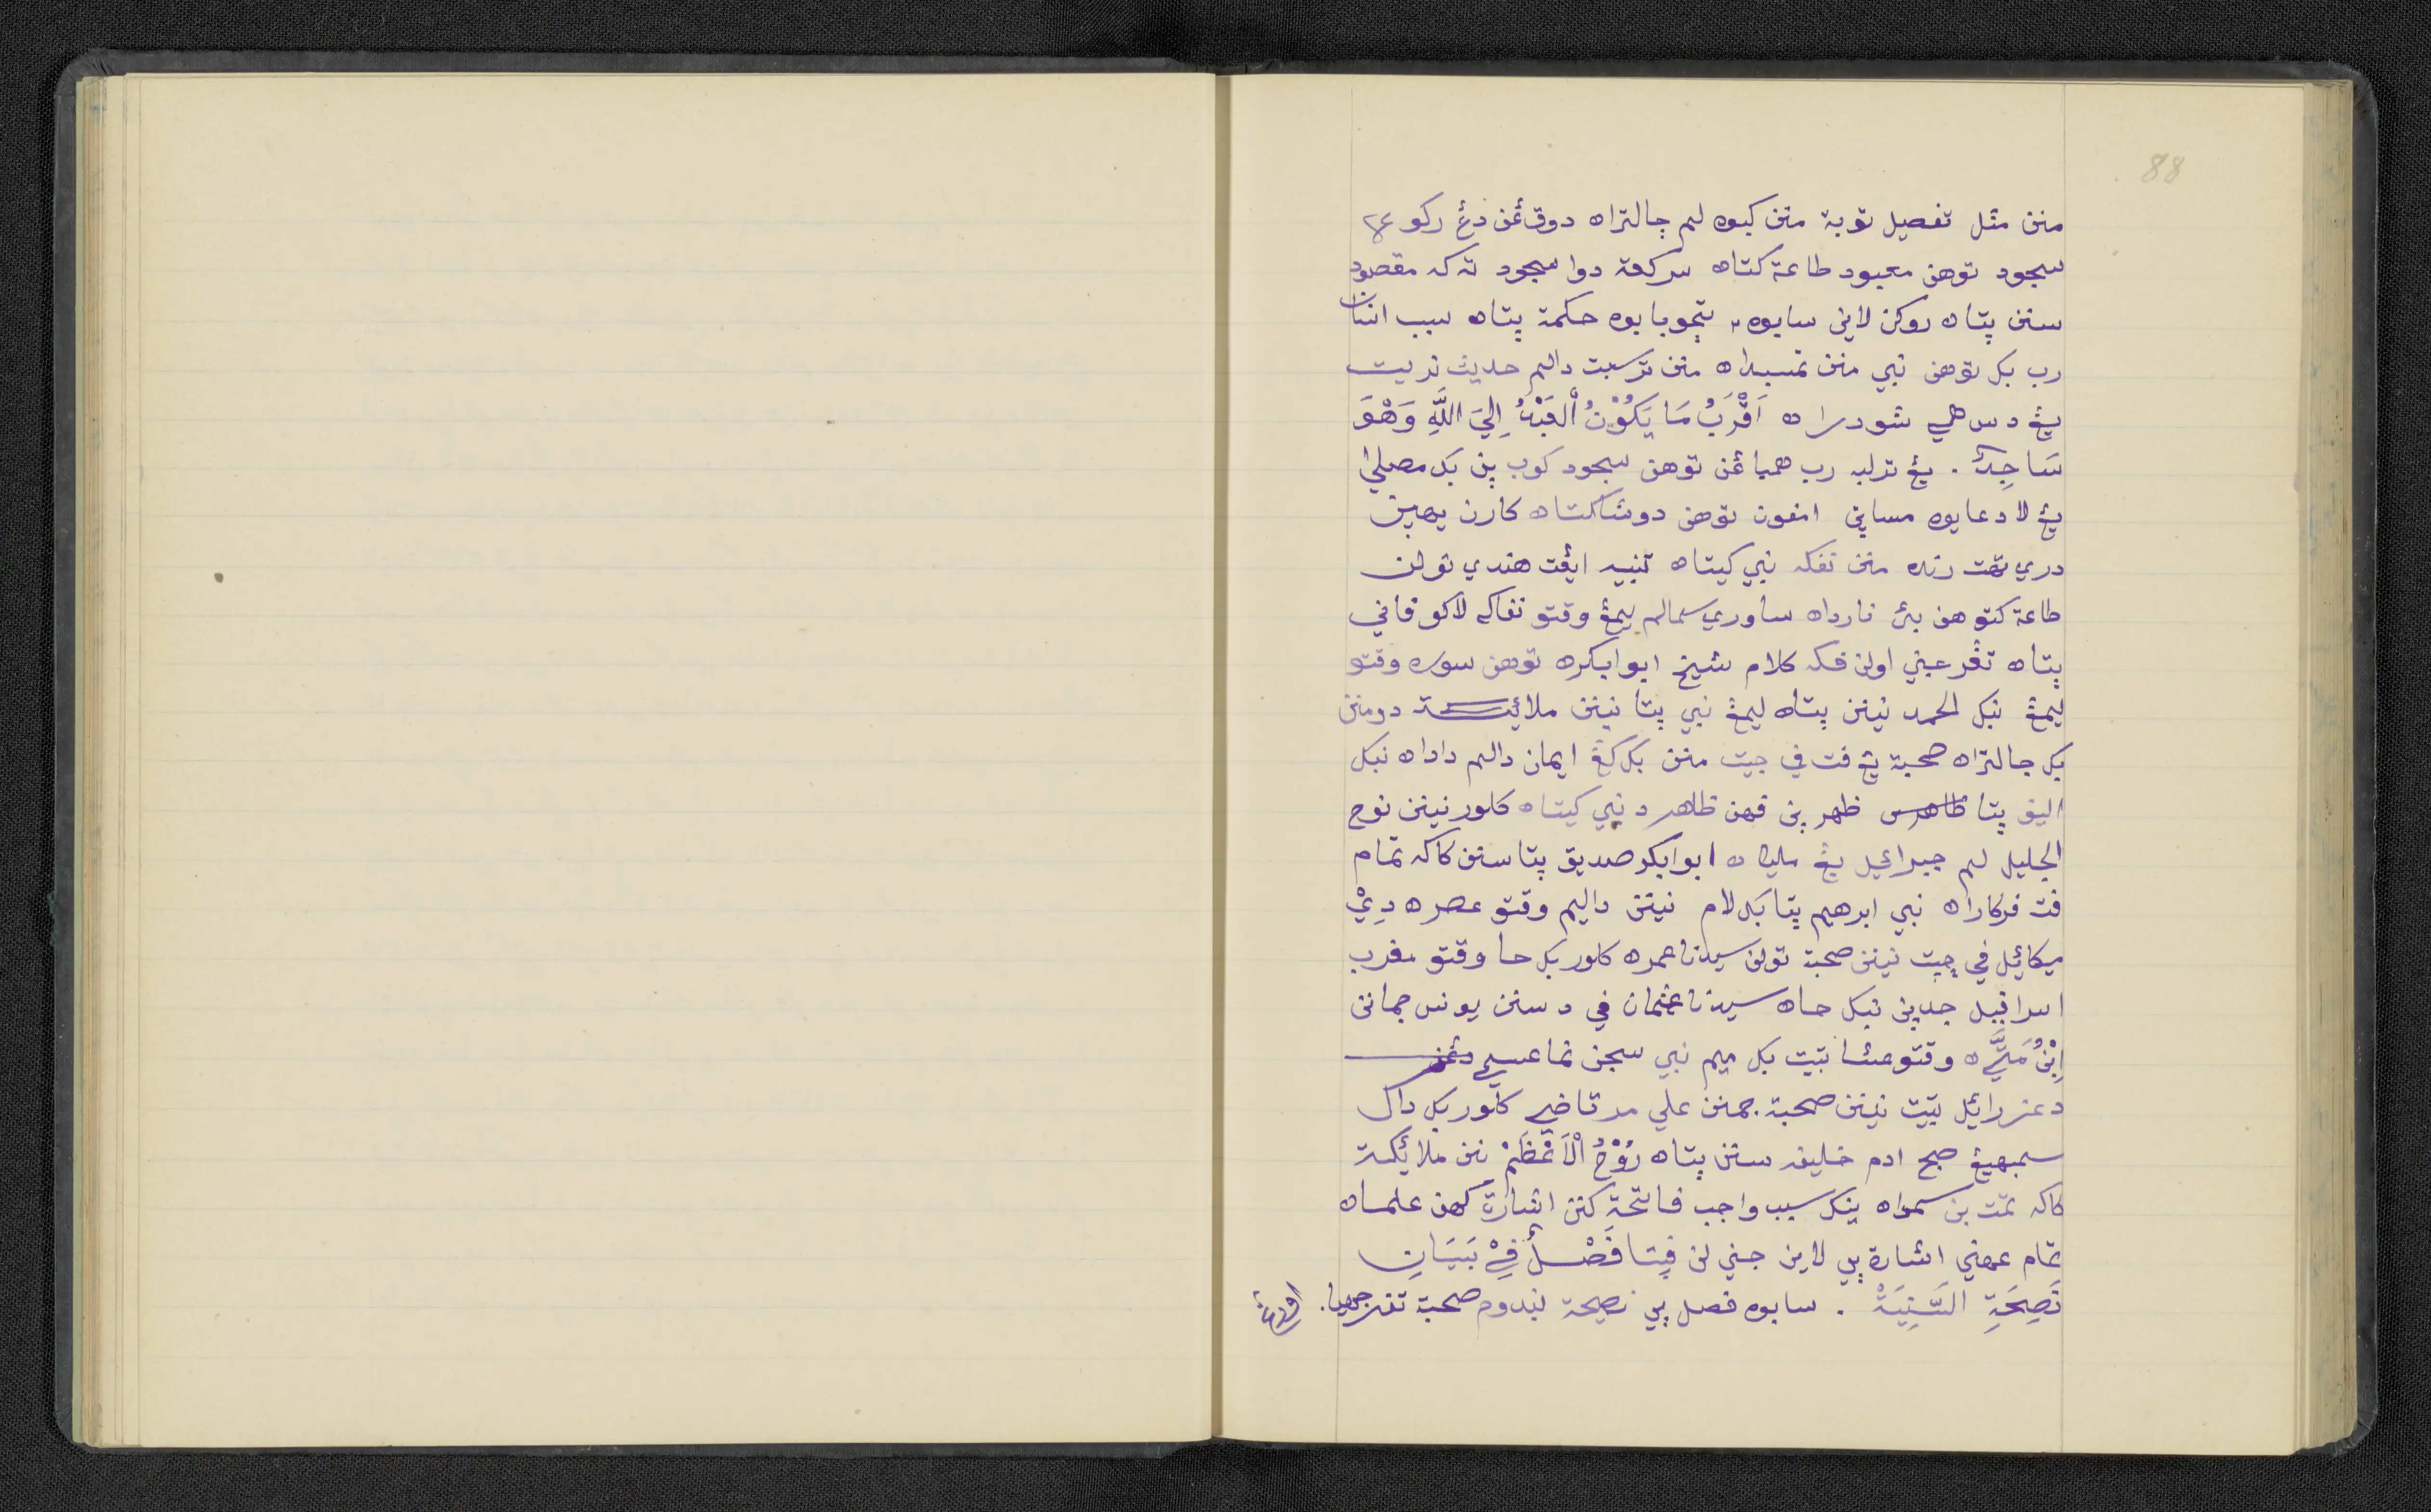 88
منن مثل تفصيل توبة منن كبوه لم جالتراه دوق ئمن دغ ركوع
سجود توهن معبود طاعة كتاه سركعة دوا سجود ته كه مقصود
سنن پتاه روكن لاين سابوه پتجوبا بوه حكمة پتاه سبب انتان
رب بكل توهن نبي منن تمسبداه منن ترسبت دالم حديث
يڠ دس هي شودراه اَقْرَبُ مَا يَكُوْنُ اْلعَبْدُ اِلَيَ اللَّهِ وَهُوَ
سَاجِدٌ . يڠ ترلبه رب همبا توهن سجود كوب پن بكل مصلي
يڠ لا دعا يوه مساين امفون توهن دوشا كتاه كارن يهين
دري تهت رنده منن تفكه نبي كيتاه تنبيه ايڠت هندي تولن
طاعة كتوهن بئ نارداه ساوري سمالم ليمڠ وقتو تفاكه لاكو فاني
پتاه تڠر عيني اولن فكه كلام شيخ ابوابكره توهن سوره وقتو
ليمڠ نبكل الحمد نينن پتاه ليمڠ نبي پتا نينن ملائكة دومنن
بكل جالتراه صحبة يڠ فت في جيت منن بكل كڠ ايمان دالم داداه نبكل
اليف پتا ظاهر ظهر پن فهن ظاهر د نبي كيتاه كلور نينن نوح
الجليل لم جبراعيل يڠ مليكاه ابوابكر صديق پتا سنن كاكه تمام
فت فركاراه نبي ابرهيم پتا بكل لام نينن داليم وقتو عصره دري
ميكائيل في جيت نينن صحبة تولن سيدنا عمره كلور بكل حا وقتو مغرب
اسرافيل جدين نبكل حاه سيدنا عثمان في د سنن يونس جمانن
اِبْنُ مَتَّي ه وقتو عشا تتيت بكل ميم نبي سجن نما عيسي دڠن
د عزرائيل تتيت نينن صحبة جمنن علي مرتاضي كلور بكل دال
سمبهيڠ صبح ادم خليفه سنن پتاه رُوْحُ اْلاَعْظَمْ نن ملائكة
كاكه تمت بن سمواه ينكل سبب واجب فاتحة كنن اشارة كهن علماه
تمام عمهني اشارة پي لاين جني لن فتا فَصْلٌ فِيْ بَيَانِ
نَصِحَةِ السَّنِيَةْ . سابوه فصل پي نصيحة ليندوم صحبة تفرجهيا .